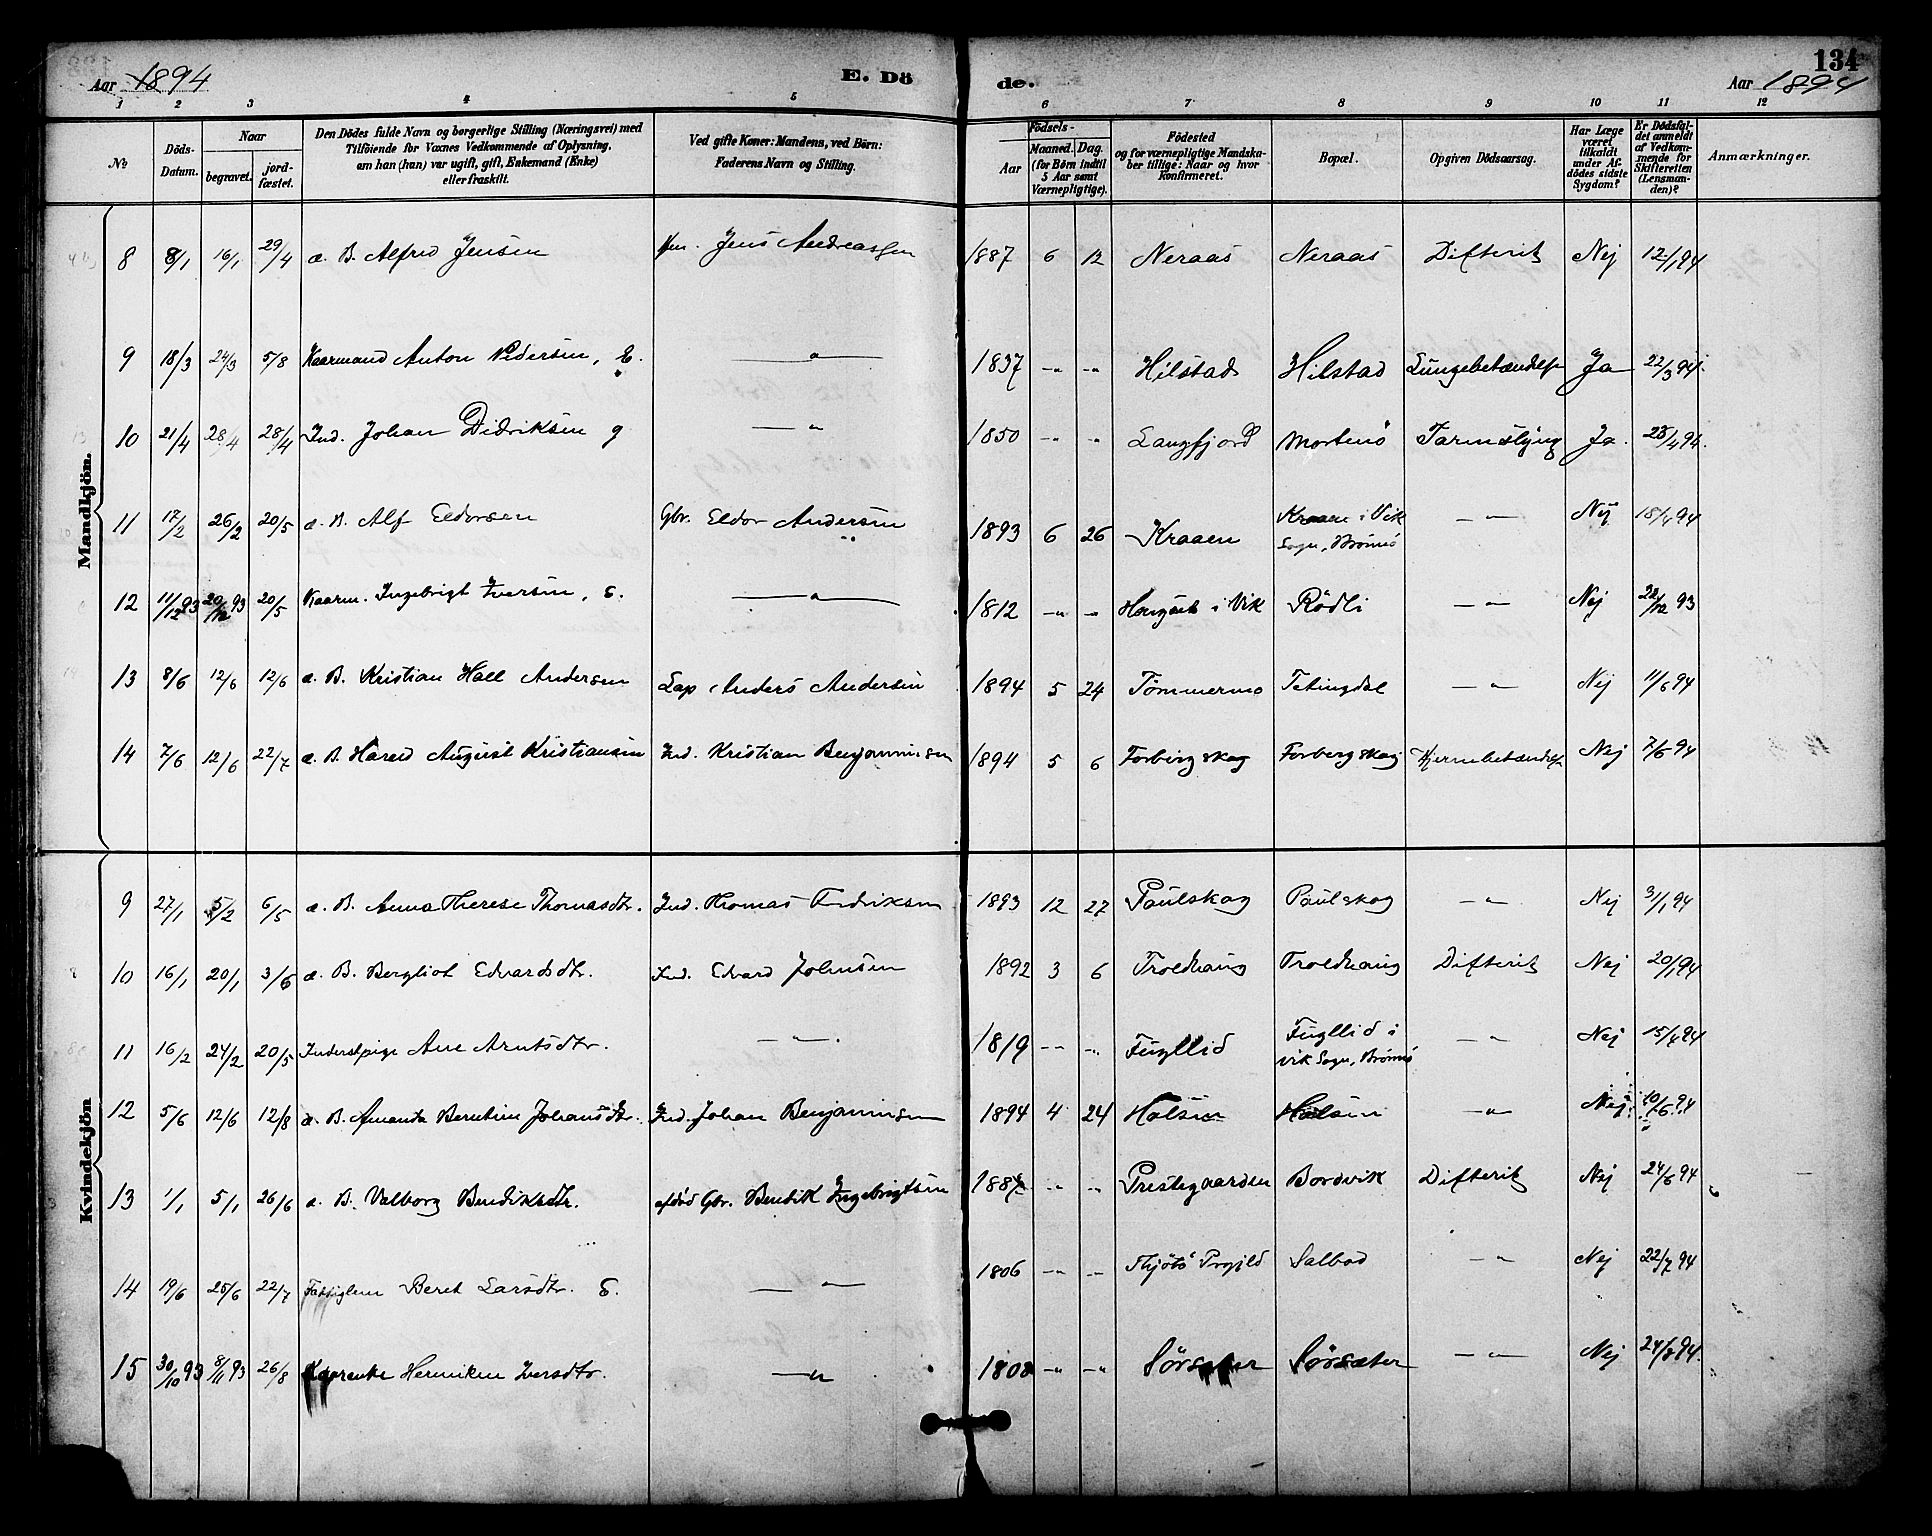 Aar 1894 E. Dö de. Aar 1894 134
1 2 3 4 5 6 7 8 9 10 11 12
No
Döds-Datum.
Naar
begravet.
jord-fæstet.
Den Dödes fulde Navn og borgerlige Stilling (Næringsvei) med
Tilföiende for Voxnes Vedkommende af Oplysning,
om han (hun) var ugift, gift, Enkemand (Enke)
eller fraskilt.
Ved gifte Koner: Mandens, ved Börn:
Faderens Navn og Stilling.
Födsels-
Aar
Maaned. Dag.
(for Börn indtil
5 Aar samt
Værnepligtige).
Födested
og for værnepligtige Mandska-
ber tillige: Naar og hvor
Konfirmeret.
Bopæl.
Opgiven Dödsaarsag.
Har Læge
været
tilkaldt
under Af-
dödes sidste
Sygdom?
Er Dödsfal-
det anmeldt
af Vedkom-
mende for
Skifteretten
(Lensman-
den)?
Anmærkninger.
Mandkjön.
8 8/1 16/1 29/4 a. B. Alfred Jensen Jens Andreassen 1887 6 12 Neraas Neraas Difterit Nej 12/1 94
9 18/3 24/3 5/8 Kaarmand Anton Pedersen, E. — " — 1837 -"- -"- Hilstad Hilstad Lungebetændelse Ja 22/3 94.
10 21/4 28/4 28/4 Ind. Johan Didriksen g — " 1850 -"- " Langfjord Mortenö Tarmslyng Ja. 28/4 94.
11 17/2 26/2 20/5 a. B. Alf Eldorsen Gbr. Eldor Andersen 1893 6 26 Kraaen Kraaen i Vik Sogn, Brönnö — " — Nej 15/4 94
12 11/12 93 20/12 93 20/5 Kaarm. Ingebrigt Iversen, E. — " — 1812 -"- " i Vik Rödli — " — Nej 22/12 93
13 8/6 12/6 12/6 a. B. Kristian Hall Andersen Lap Anders Andersen 1894 5 24 Tömmermo Tetingdal — " — Nej 11/6 94
14 7/6 12/6 22/7 a. B. Harald August Kristiansen Ind. Kristian Benjaminsen 1894 5 6 Forbergskog Forbergskog Hjernebetændelse Nej 7/6 94
Kvindekjön
9 27/1 5/2 6/5 a. B. Anna Therese Thomasdtr. Ind. Thomas Fredriksen 1893 12 27 Paulskog Paulskog — " Nej 31/1 94
10 16/1 20/1 3/6 a. B. Bergliot Edvardsdtr. Ind. Edvard Johnsen 1892 3 6 Troldhaug Troldhaug Difterit Nej 20/1 94
11 16/2 24/2 20/5 Inderstpige Ane Arntsdtr. — " — 1819 -"- -"- Fugllid Fugllid i Vik Sogn, Brönnö — " Nej 15/4 94
12 5/6 12/6 12/8 a. B. Amanda Berntine Johansdtr. Ind. Johan Benjaminsen 1894 4 24 Holsen Holsen — " Nej 10/6 94
13 1/1 5/1 26/6 a. B. Valborg Bendiksdtr. afdöd Gbr. Bendik Ingebrigtsen -"- -"- Prestegaarden Bordvik Difterit Nej 24/6 94
14 19/6 25/6 22/7 Fattiglem Beret Larsdtr. E. — " — 1806 -"- -"- Thjötö Prgjld Salbod — " Nej 22/7 94
15 30/10 93 8/11 93 26/8 Kaarenke Henriken Iversdtr. — " 1808 -"- -"- Sörsæter Sörsæter — " — Nej 24/8 94.